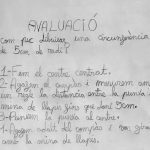 AVALUACIÓ
Com puc dibuixar una circumferència
de 5cm de radi?
1-Fem el centre
2-Agafem el compàs i
un regle la distancia entre la punta i
mina de llapis fins que doni 5cm.
3-Punxem la punxa al centre.
4-Agafem del compàs i
amb la mina de llapis.